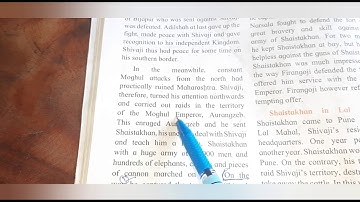 of Bijapur who was sent against Shivaji
was defeated. Adilshah at last gave up the
fight, made peace with Shivaji and gave
recognition to his independent Kingdom.
Shivaji thus had peace for some time on
his southern border.
In the meanwhile, constant
Moghul attacks from the north had
practically ruined Maharashtra. Shivaji,
therefore, turned his attention northwards
and carried out raids in the territory
of the Moghul Emperor, Aurangzeb.
This enraged and he sent
Shaistakhan, his deal with Shivaji
and teach him Shaistakhan
with a huge army of men and
hundreds of elephants, and pieces
of cannon marched on On the
fought to defend the
great bravery and skill against
army of Shaistakhan. For two
he kept Shaistakhan at bay, but
helpless against the guns of Shaista
Shaistakhan was much impressed
the way Firangoji defended
offered him service with the
Emperor. Firangoji however ref
tempting offer.
Shaistakhan in Lal
Shaistakhan came to Pune
Lal Mahal, Shivaji's res
headquarters. One year pa
another year. Shaistakhan w
Pune. On the contrary, his
and raid Shivaji's territory
destro